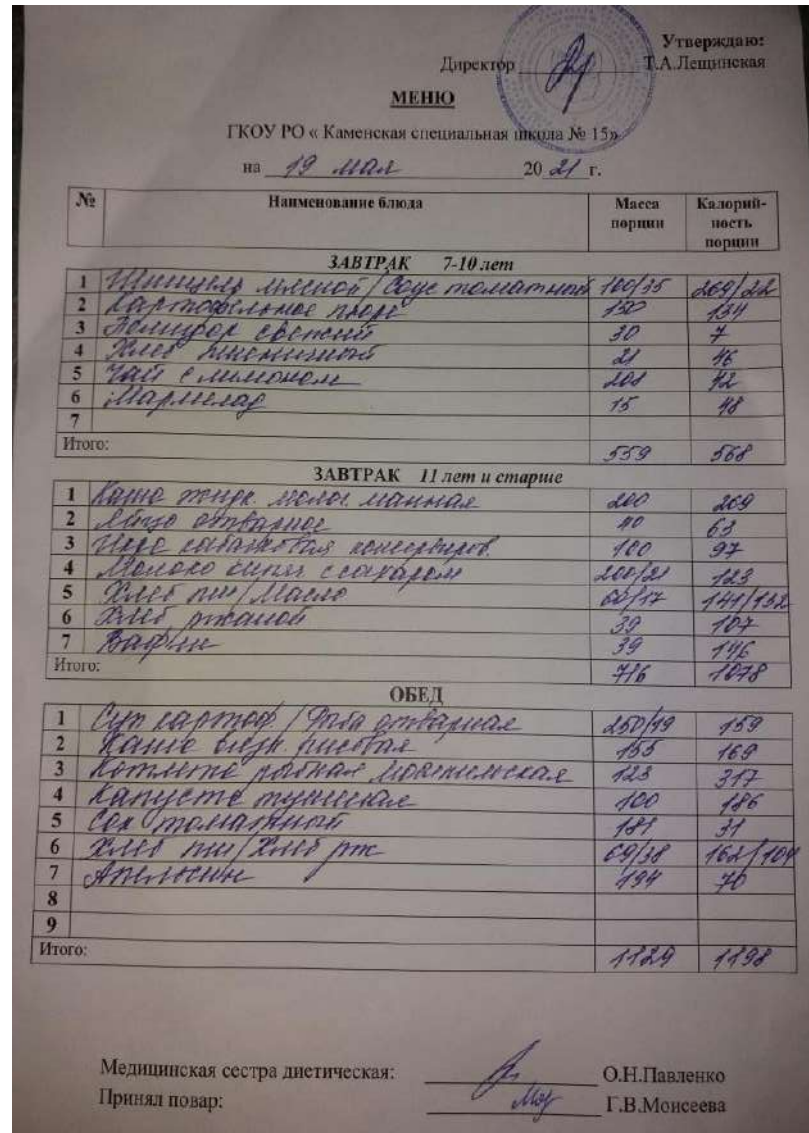 Утверждаю:
Директор Т.А.Лещинская
МЕНЮ
ГКОУ РО « Каменская специальная школа № 15»
на 19 мая 2021 г.
№ Наименование блюда Масса порции Калорий-ность порции
ЗАВТРАК 7-10 лет
1 Шницель мясной / Соус томатный 100/35 269/22
2 Картофельное пюре 150 134
3 Помидор свежий 30 7
4 Хлеб пшеничный 21 46
5 Чай с лимоном 208 42
6 Мармелад 15 48
7
Итого: 559 568
ЗАВТРАК 11 лет и старше
1 Каша жидк. молоч. манная 200 269
2 Яйцо отварное 40 63
3 Икра кабачковая консервиров. 100 97
4 Молоко кипяч с сахаром 200/21 123
5 Хлеб пш/Масло 60/17 141/132
6 Хлеб ржаной 39 107
7 Вафли 39 146
Итого: 716 1078
ОБЕД
1 Суп картоф. / Рыба отварная 250/19 159
2 Каша вязк. рисовая 155 169
3 Котлета рыбная 123 317
4 Капуста тушеная 100 186
5 Сок томатный 181 31
6 Хлеб пш/Хлеб рж 69/38 162/104
7 Апельсин 194 70
8
9
Итого: 1129 1198
Медицинская сестра диетическая: О.Н.Павленко
Принял повар: Г.В.Моисеева